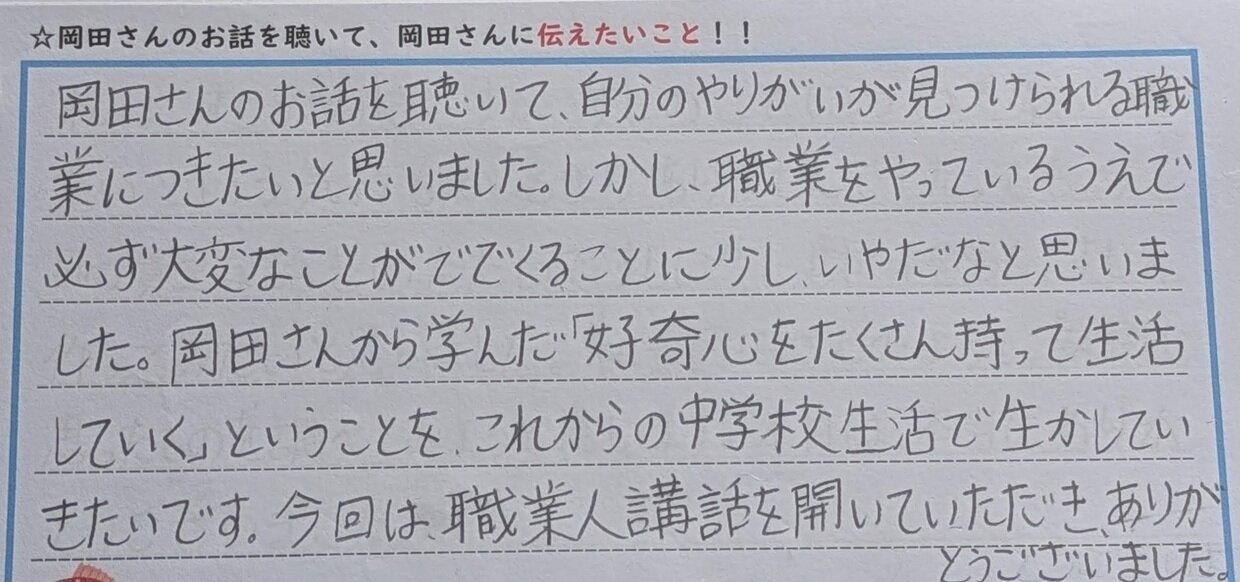 ☆岡田さんのお話を聴いて、岡田さんに伝えたいこと！！
岡田さんのお話を聴いて、自分のやりがいが見つけられる職
業につきたいと思いました。しかし、職業をやっているうえで
必ず大変なことがででくることに少し、いやだなと思いま
した。岡田さんから学んだ「好奇心をたくさん持って生活
していく」ということを、これからの中学校生活で生かしてい
きたいです。今回は、職業人講話を開いていただき、ありが
とうございました。